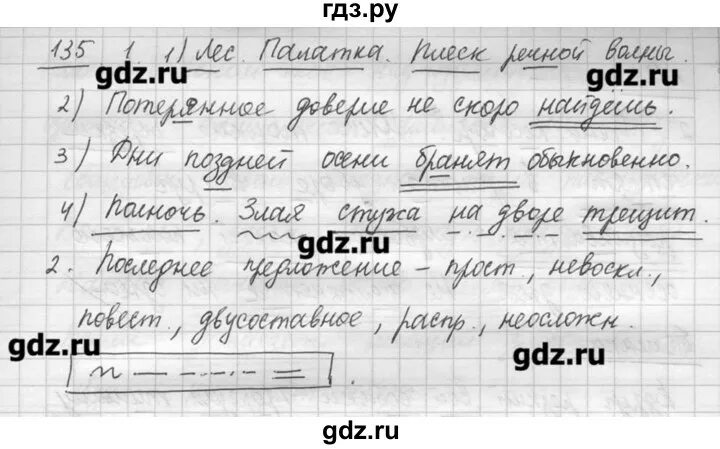 гдз.ру
135 1 1) Лес. Палатка. Плеск речной волны.
gdz.ru gdz.ru
2) Потерянное доверие не скоро найдёшь.
3) Дни поздней осени бранят обыкновенно.
4) Полночь. Злая стужа на дворе трещит.
gdz.ru
2. Последнее предложение – прост., невоскл.,
повест., двусоставное, распр., неосложн.
gdz.ru gdz.ru
gdz.ru